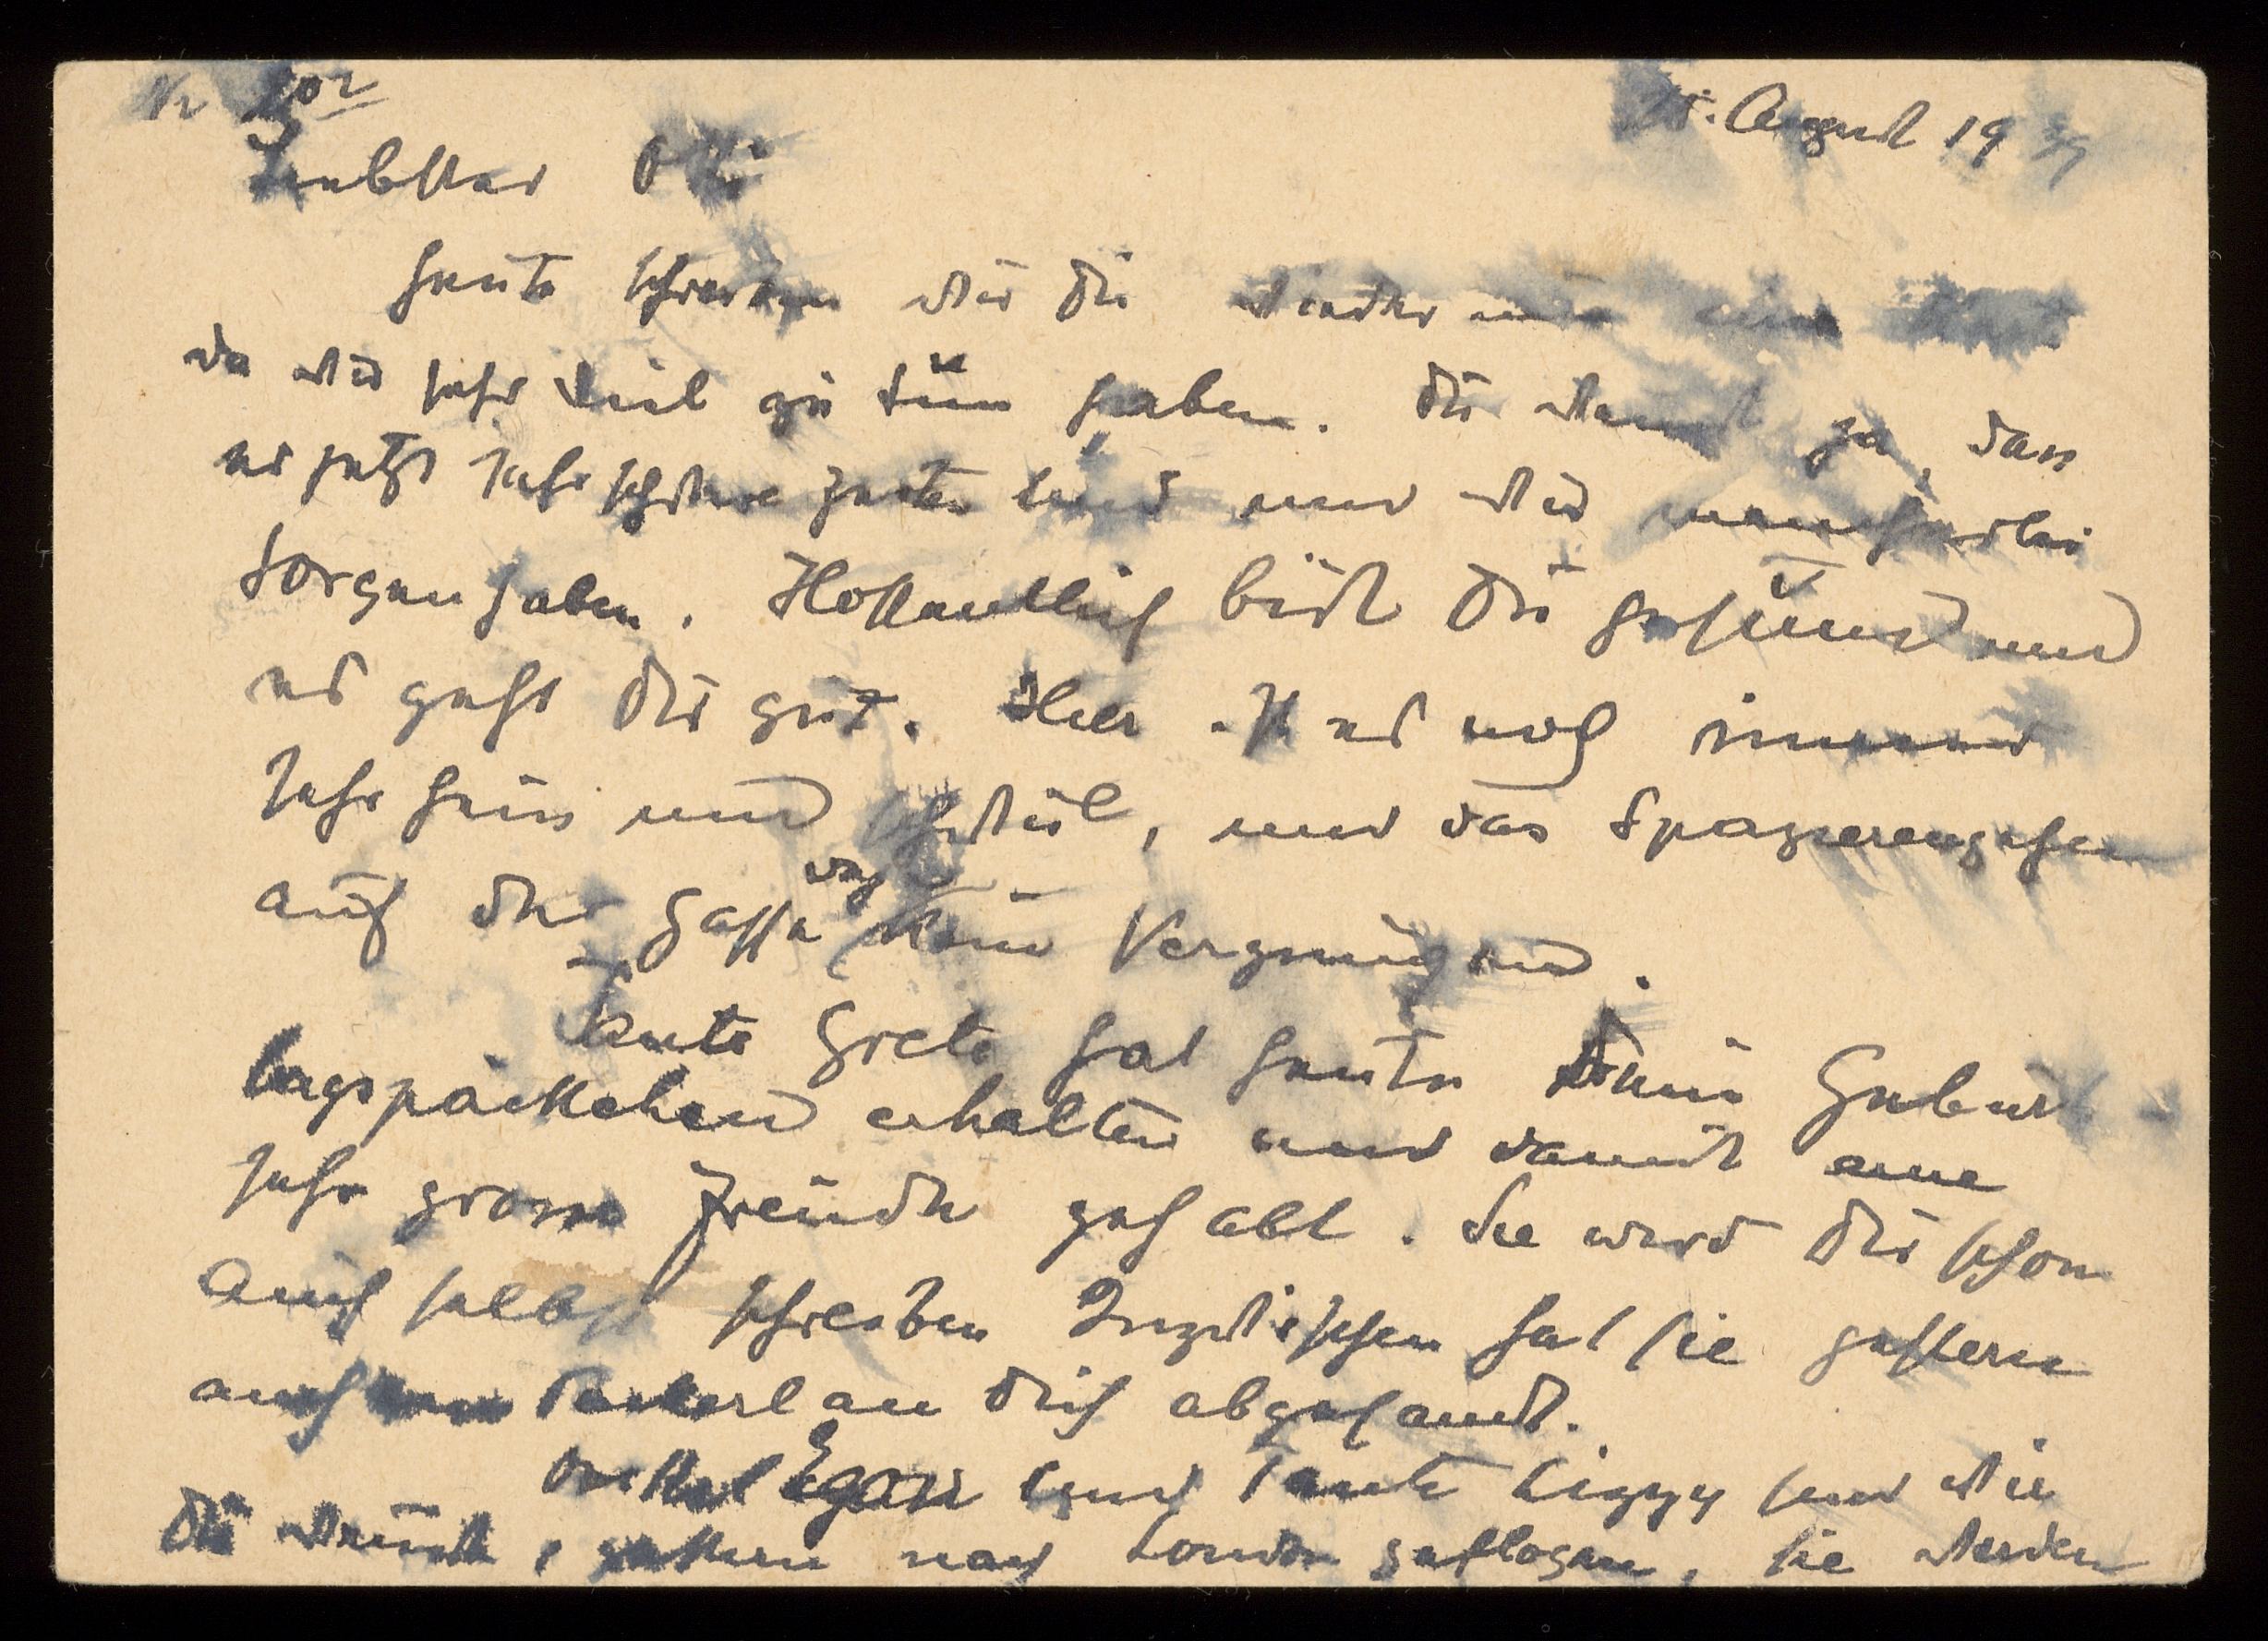 Nr 202
25. August 1939
Liebster Otti
heute schreiben wir Dir wieder nur eine Karte
da wir sehr viel zu tun haben. Du weisst ja, dass
es jetzt sehr schwere Zeiten sind und wir mancherlei
Sorgen haben. Hoffentlich bist Du gesund und
es geht Dir gut. Hier ist es noch immer
sehr heiss und schwül, und das Spazierengehen
auf der Gasse kein Vergnügen.
Tante Grete hat heute Dein Geburts
tagspäckchen erhalten und damit eine
sehr grosse Freude gehabt. Sie wird Dir schon
auch selbst schreiben Inzwischen hat sie gestern
auch ein Packerl an Dich abgesandt.
Onkel Egon und Tante Lizzy sind wie
Du weisst, gestern nach London geflogen, sie werden